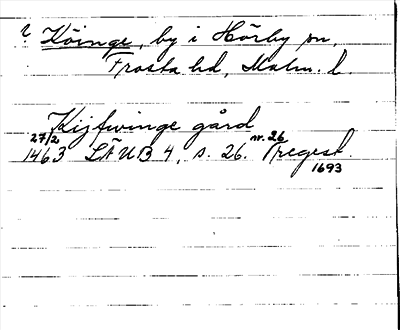 ? Köinge, by i Hörby sn,
Frosta hd, Malm. l.
Kijfwinge gård
27/2 1463 LÄUB 4, s. 26. nr. 26 Tregest.
1693